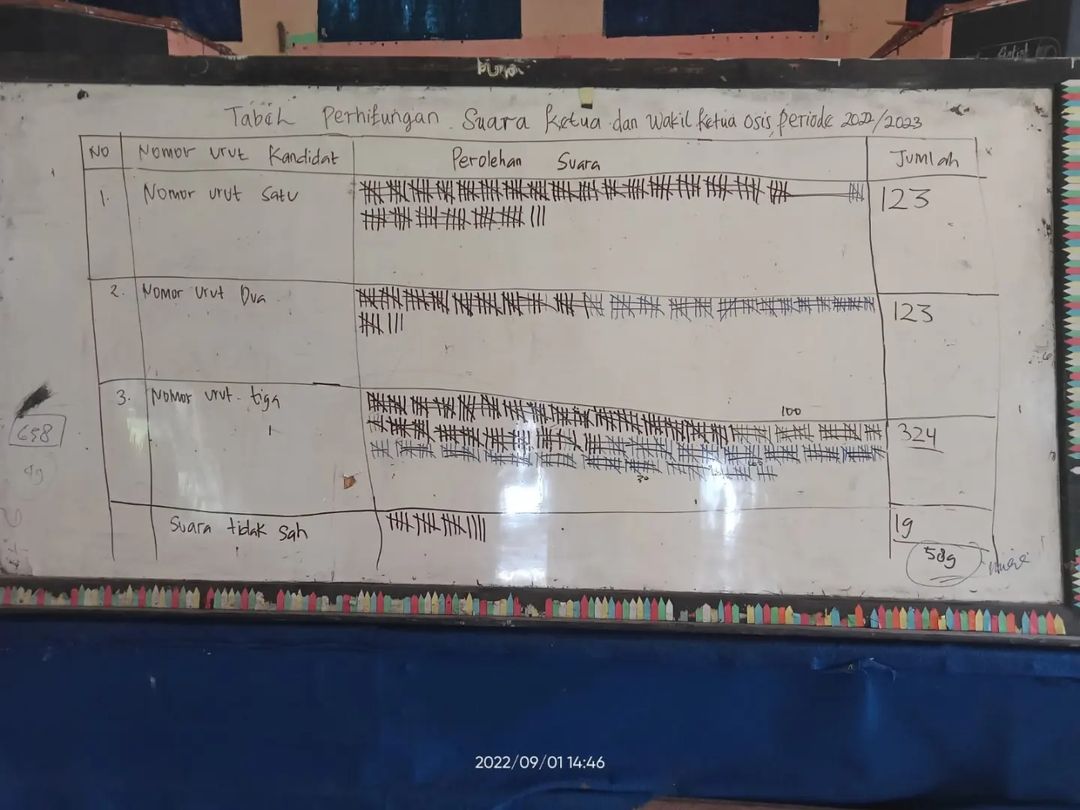 Tabel Perhitungan Suara Ketua dan Wakil Ketua Osis Periode 2022/2023
No Nomor urut Kandidat Perolehan Suara Jumlah
1. Nomor urut satu 123
2. Nomor urut Dua 123
3. Nomor urut tiga 100 324
Suara tidak sah 19
589
2022/09/01 14:46